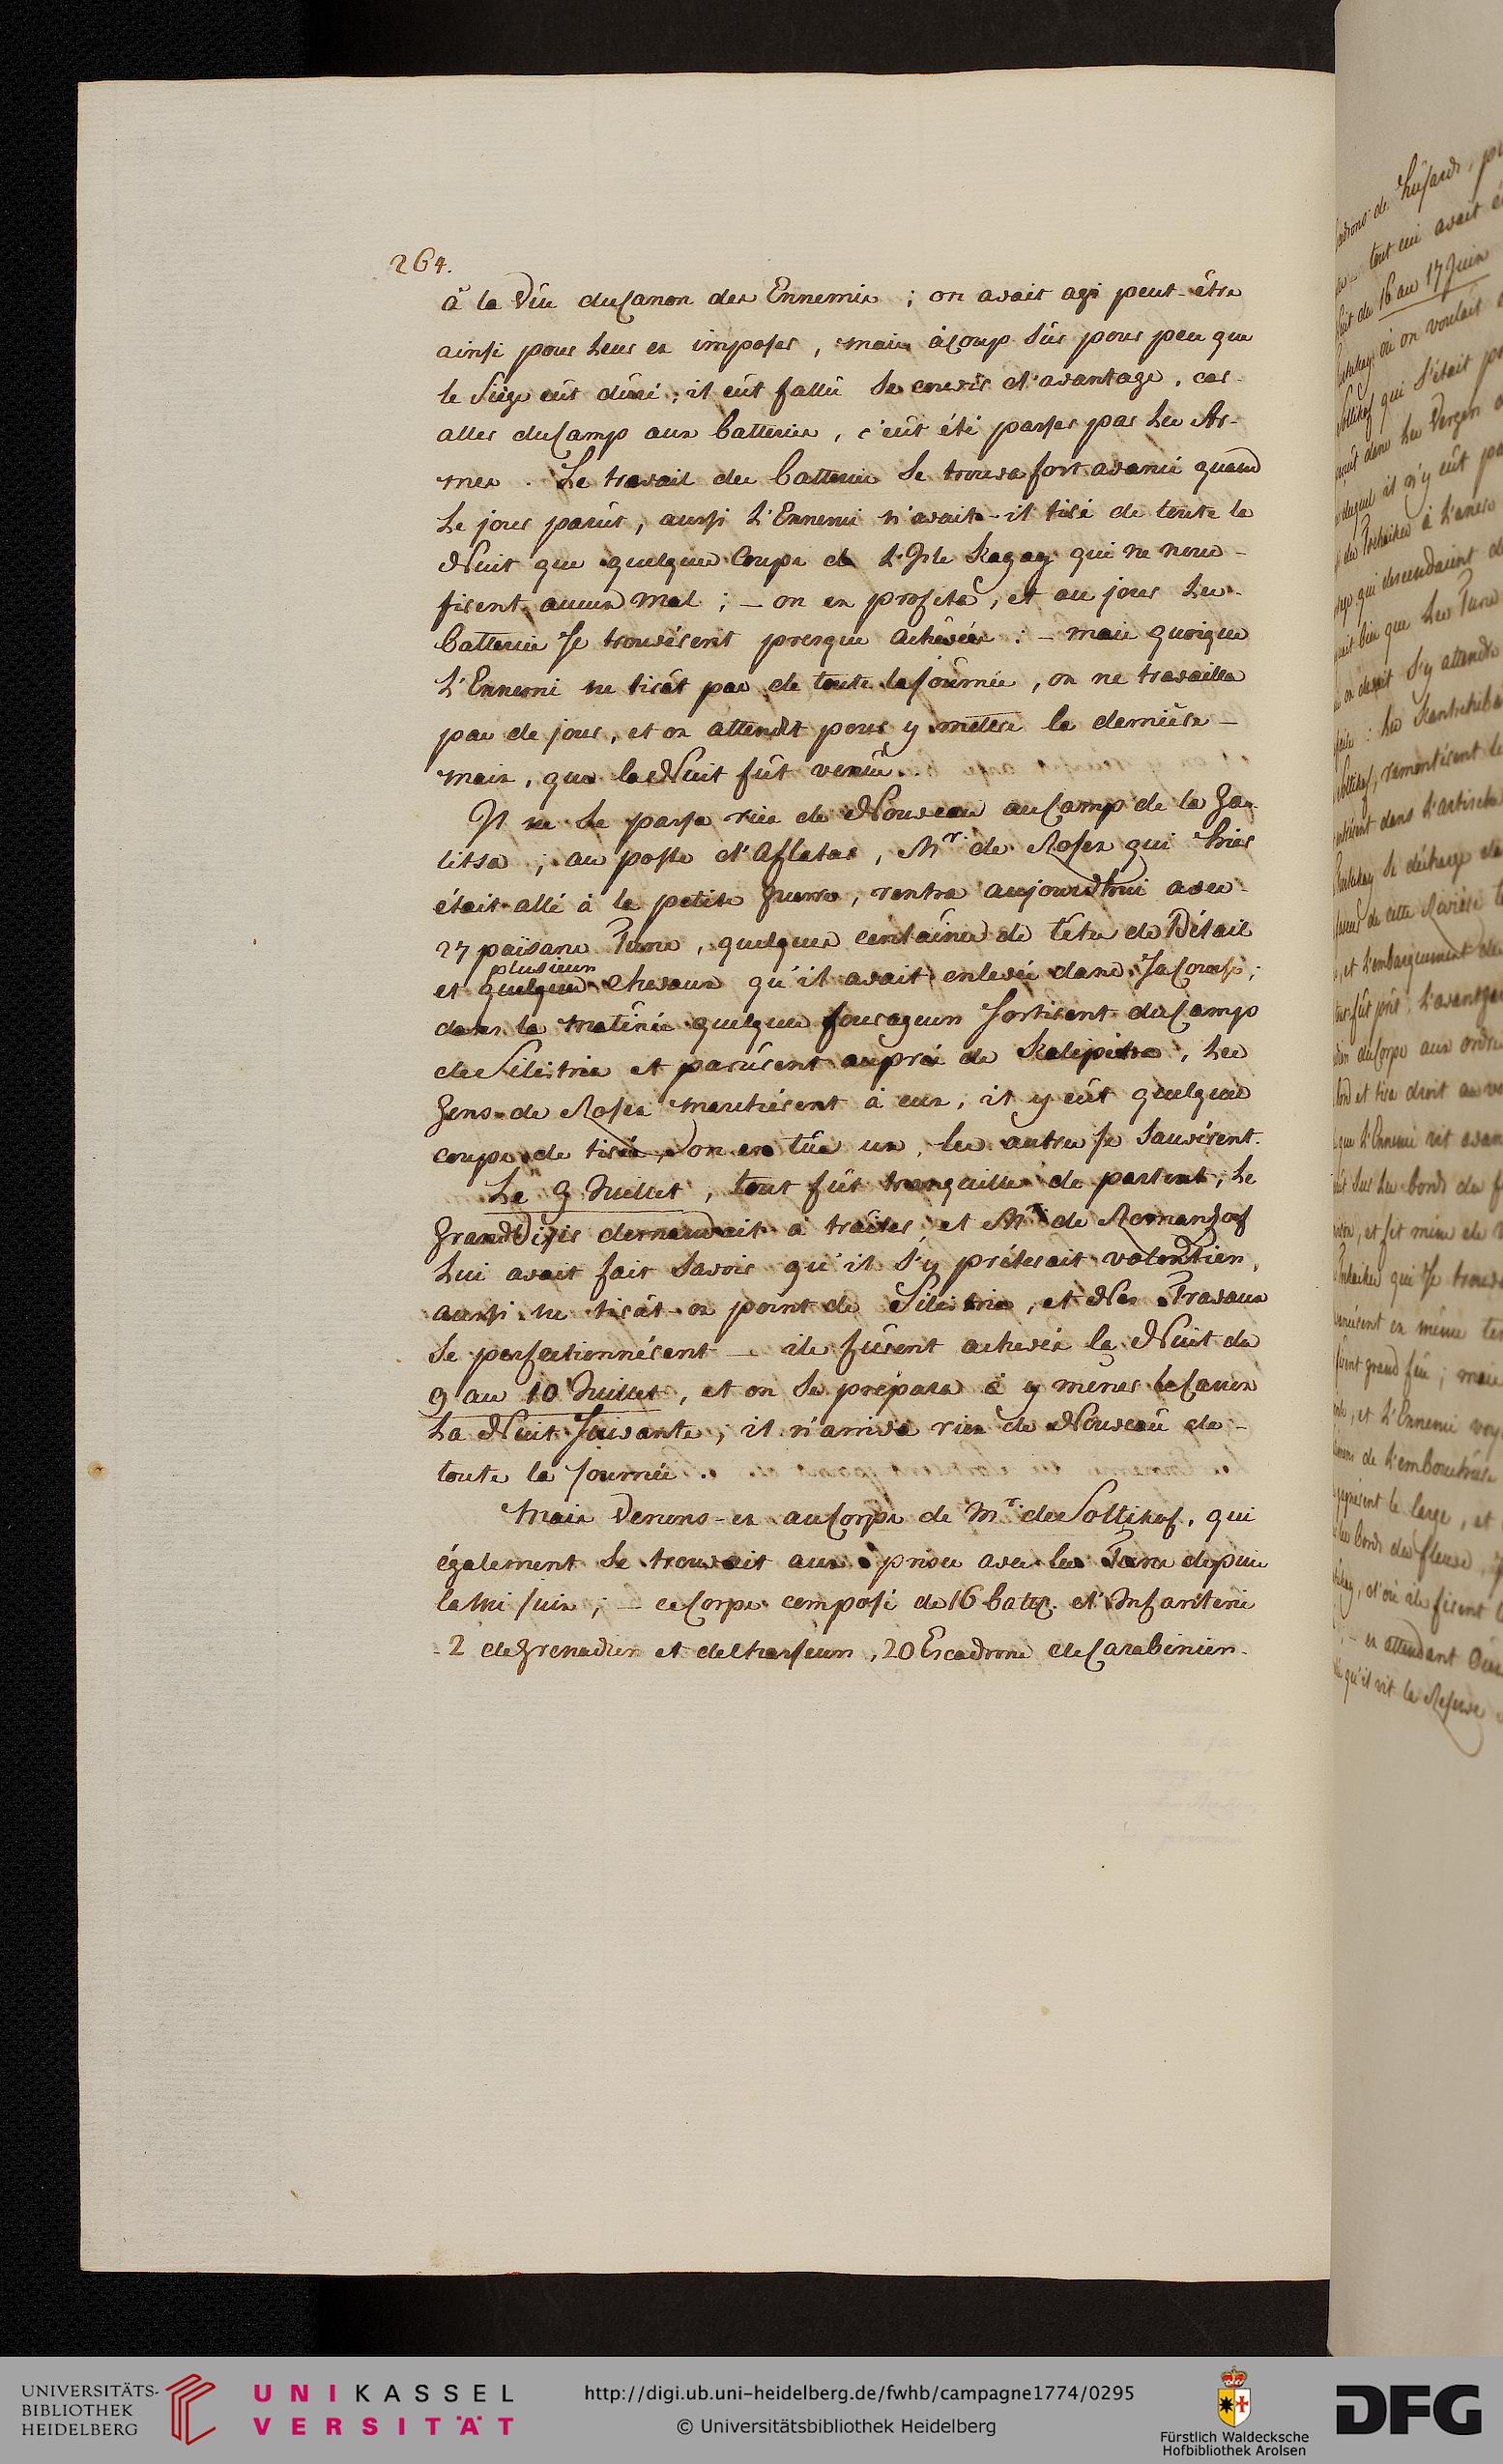 264.
à la Vüe du Canon des Ennemis ; on avait agi peut-être
ainsi pour leur en imposer, mais à coup sûr pour peu que
le Siège eût duré, il eût fallû se couvrir d'avantage, car
aller du Camp aux batteries, c'eût été passer par les Ar-
mes. Le travail des batteries se trouva fort avancé quand
le jour parût, aussi l'Ennemi n'avait-il tiré de toute la
Nuit que quelques Coups de l'Isle qui ne nous
firent aucun mal ; – on en profita, et au jour les
batteries se trouvérent presque achevées : – mais quoique
l'Ennemi ne tirât pas de toute la journée, on ne travailla
pas de jour, et on attendit pour y mettre la derniére –
main, que la Nuit fût venüe.
Il ne se passa rien de Nouveau au Camp de la Ga-
litsa ; au poste d'Aflatar, Mr de Rosen qui hier
était allé à la petite guerre, rentra aujourd'hui avec
27 païsans Turcs, quelques centaines de têtes de Bétail
plusieurs
et quelques Chevaux qu'il avait enlevés dans sa Course ;
dans la matinée quelques fourageurs sortirent du Camp
de Silistrie et parûrent auprès de Kalipetro, les
Gens de Rosen marchérent à eux, il y eût quelques
coups de tirés, on en tüa un, les autres se sauvérent.
Le 9 Juillet, tout fût tranquille de partout, le
Grand Visir demandait à traiter, et Mr de Romanzof
lui avait fait savoir qu'il s'y préterait volontiers,
aussi ne tirât-on point de Silistrie, et Nos Travaux
se perfectionnérent – ils fûrent achevés la Nuit du
9 au 10 Juillet, et on se prépara à y mener le Canon
la Nuit suivante, il n'arriva rien de Nouveau de –
toute la journée.
Mais venons-en au Corps de Mr de Soltikof, qui
également se trouvait aux prises avec les Turcs depuis
la mi Juin ; – ce Corps composé de 16 bator. d'Infanterie
2 de Grenadiers et de Chasseurs, 20 Escadrons de Carabiniers
16 au 17 Juin
UNIVERSITÄTS-
BIBLIOTHEK
HEIDELBERG
UNIKASSEL
VERSITÄT
http://digi.ub.uni-heidelberg.de/fwhb/campagne1774/0295
© Universitätsbibliothek Heidelberg
Fürstlich Waldecksche
Hofbibliothek Arolsen
DFG